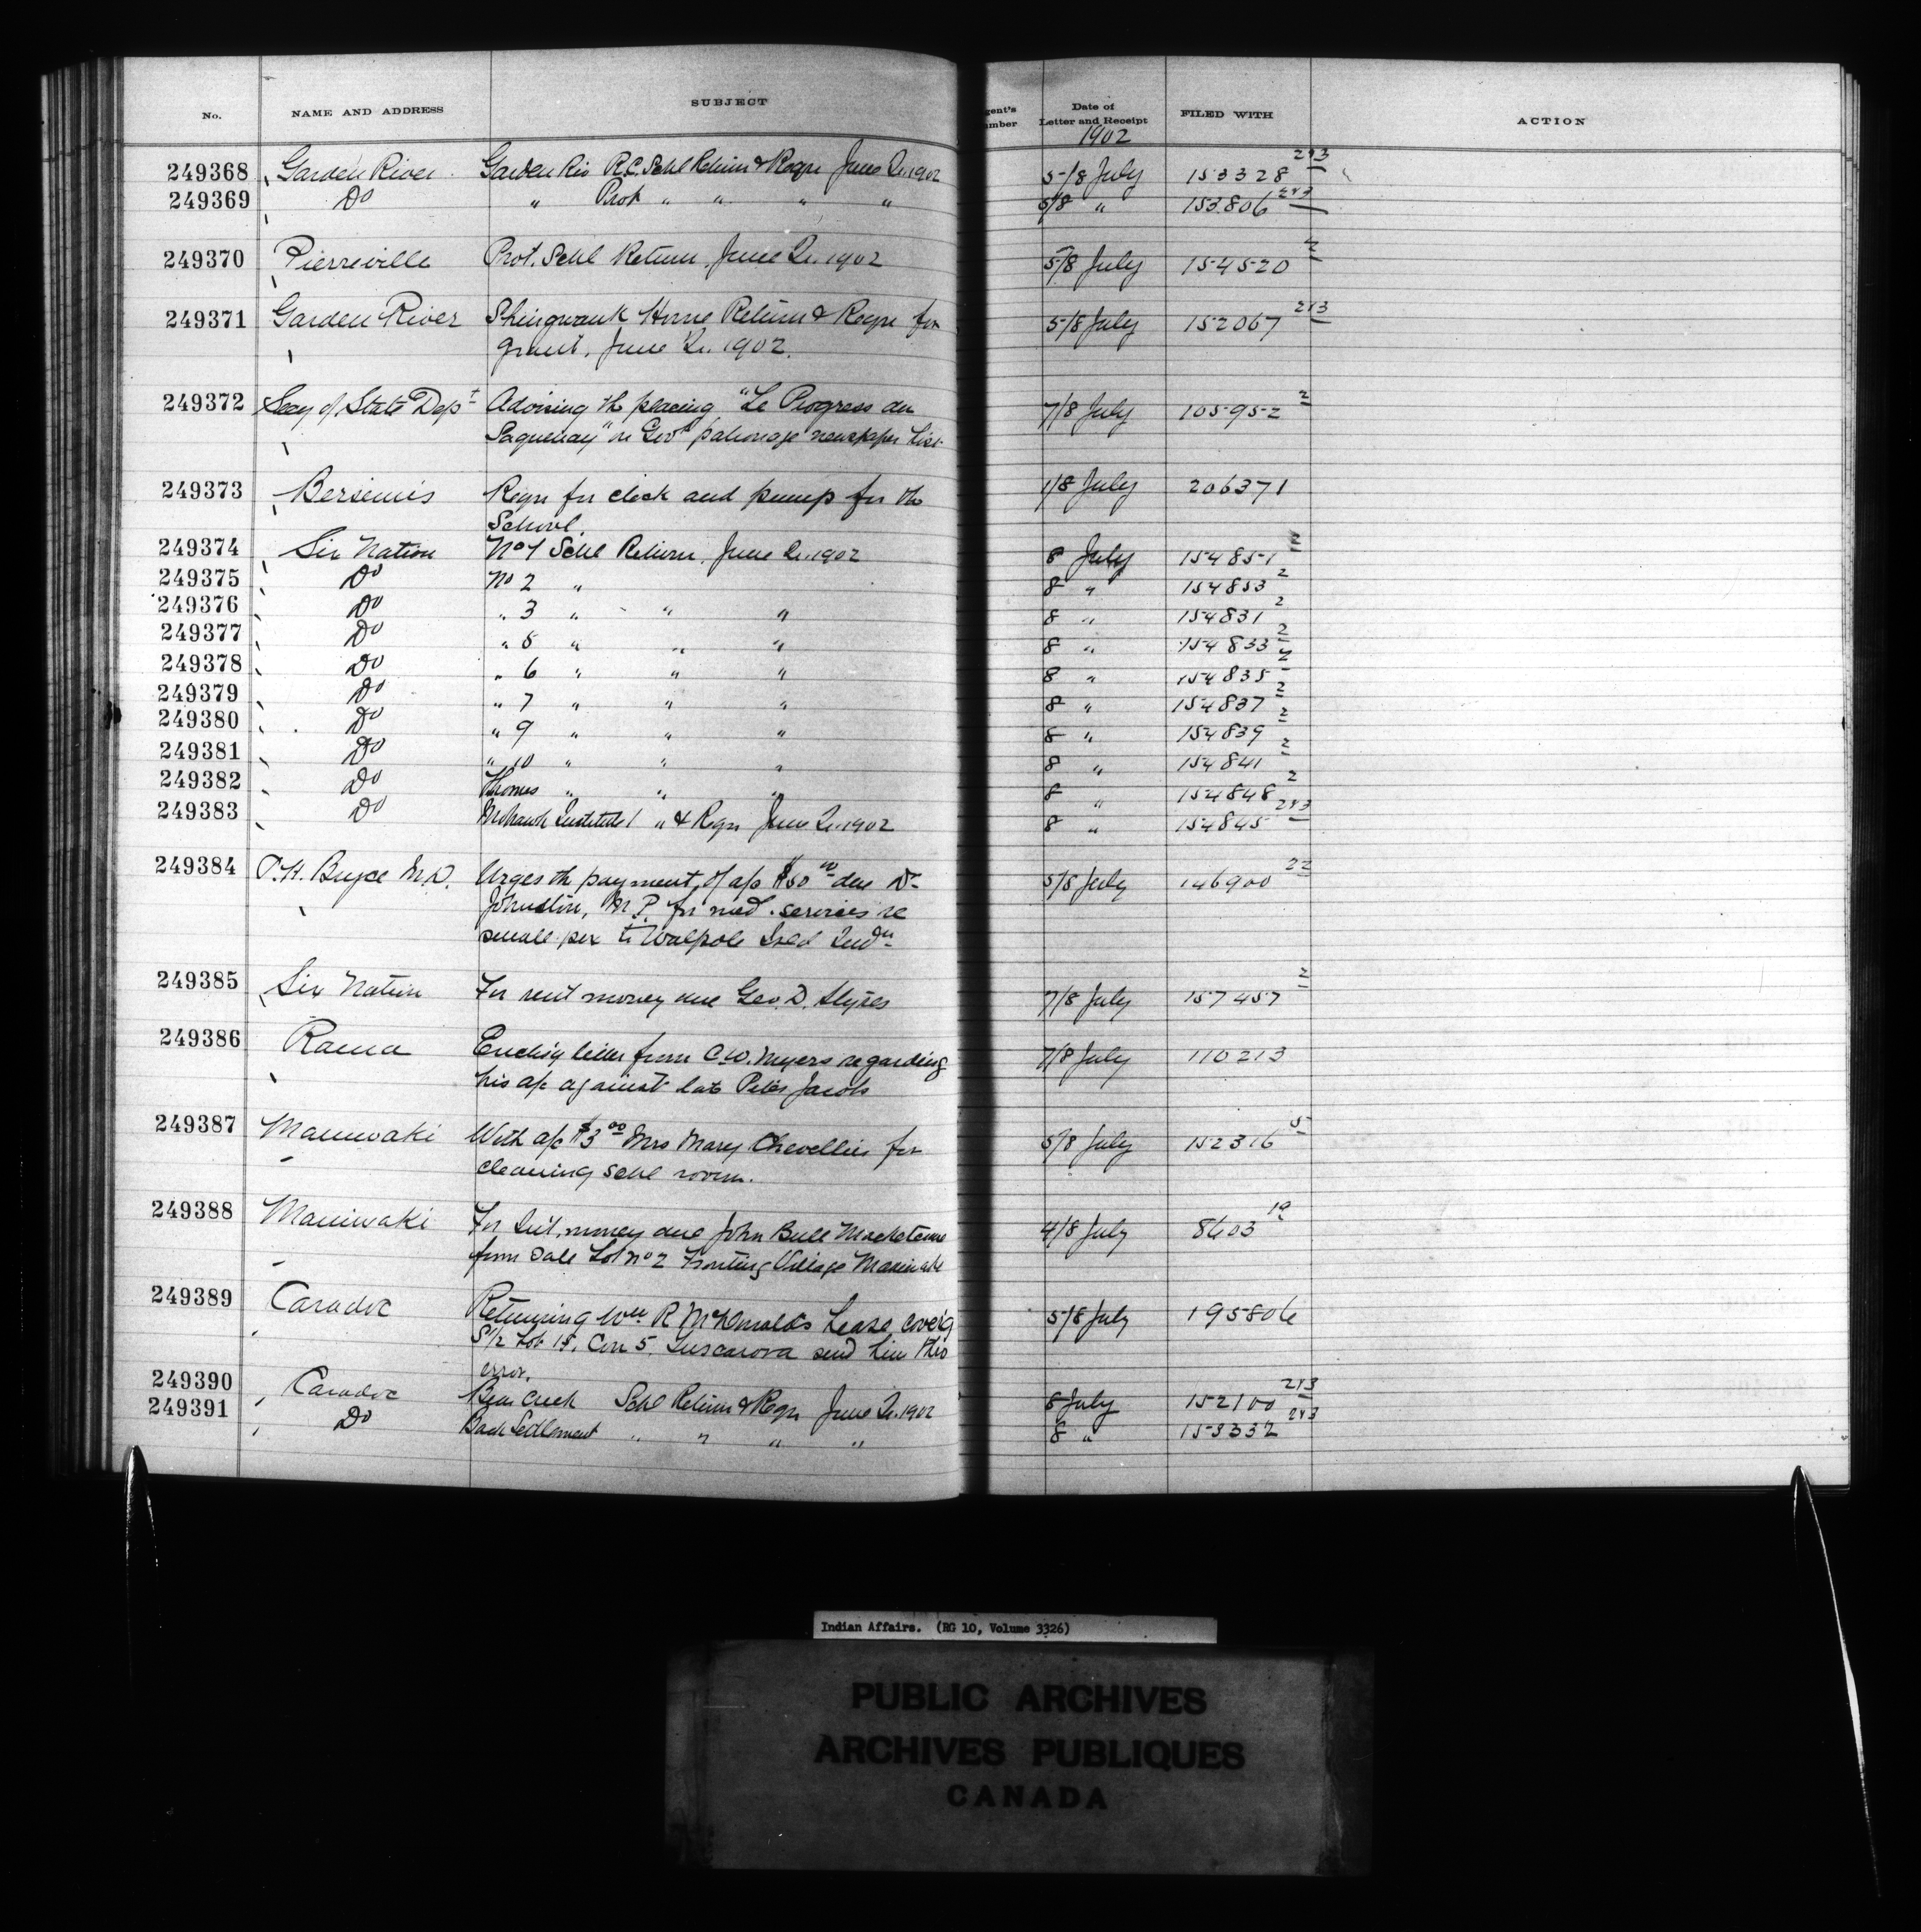 No. NAME AND ADDRESS SUBJECT gent's umber Date of Letter and Receipt FILED WITH ACTION
1902
249368 Garden River Garden Riv R.C. Schl Return & Reqn June Qr. 1902 5/8 July 153328 2&3
249369 Do " Prot " " " " 5/8 " 153806 2&3
249370 Pierreville Prot. Schl Return June Qr. 1902 5/8 July 154520 2
249371 Garden River Shingwauk Home Return & Reqn for 5/8 July 152067 2&3
grant, June Qr. 1902.
249372 Secy of State Dept Advising th placing "Le Progress du 7/8 July 105952 2
Saguenay" on Govt patronage newspaper List
249373 Bersimis Reqn for clock and pump for the 1/8 July 206371
School.
249374 Six Nation No 1 Schl Return, June Qr. 1902 8 July 154851 2
249375 Do No 2 " 8 " 154853 2
249376 Do " 3 " " " 8 " 154831 2
249377 Do " 5 " " " 8 " 154833 2
249378 Do " 6 " " " 8 " 154835 2
249379 Do " 7 " " " 8 " 154837 2
249380 Do " 9 " " " 8 " 154839 2
249381 Do " 10 " " " 8 " 154841 2
249382 Do Thomas " " " 8 " 154848 2
249383 Do Mohawk Institute " & Reqn June Qr. 1902 8 " 154845 2&3
249384 P.H. Bryce M.D. Urges th payment of a/c $50 00 due Dr 5/8 July 146900 22
Johnston, M.P. for med. services re
small pox to Walpole Isld Indn
249385 Six Nation For rent money due Geo. D. Styres 7/8 July 157457 2
249386 Rama Enclosg letter from C.W. Myers regarding 7/8 July 110213
his a/c against late Peter Jacobs
249387 Maniwaki With a/c $3 00 Mrs Mary Chevellier for 5/8 July 152316 5
cleaning schl room.
249388 Maniwaki For Int. money due John Bull 4/8 July 8603 19
from Sale Lot No 2 Fronting Village Maniwaki
249389 Caradoc Returning Wm R McDonalds Lease coverg 5/8 July 195806
S1/2 Lot 18, Con 5, Tuscarora send him thro
error.
249390 Caradoc Bear Creek Schl Return & Reqn June Qr. 1902 8 July 152100 2&3
249391 Do Back Settlement " " " " 8 " 153332 2&3
Indian Affairs. (RG 10, Volume 3326)
PUBLIC ARCHIVES
ARCHIVES PUBLIQUES
CANADA